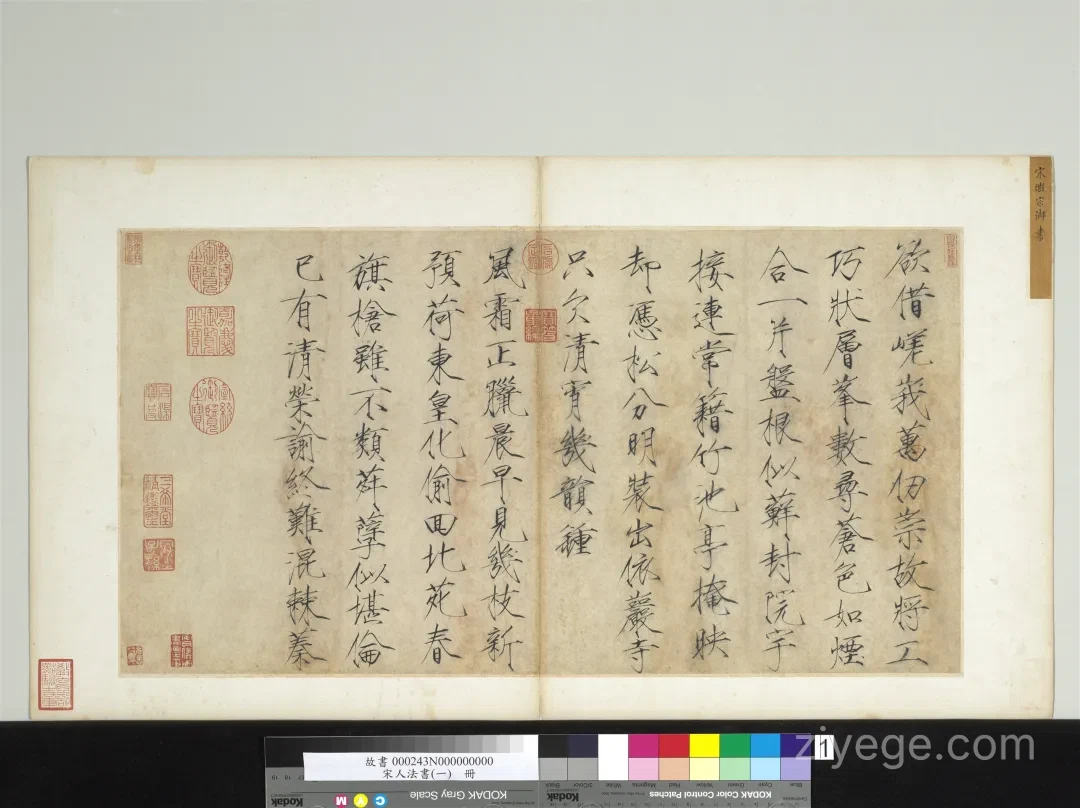 宋徽宗御書
欲借嵯峩萬仞崇故將工
巧狀層峯數尋蒼色如煙
合一片盤根似蘚封院宇
接連常籍竹池亭掩映
却憑松分明裝出依巖寺
只欠清宵幾韻種
風霜正臘晨早見幾枝新
預荷東皇化偷回北苑春
旗槍雖不類荈蘖似堪倫
已有清榮諭終難混棘蓁
故書 000243N000000000
宋人法書(一) 冊
KODAK Gray Scale
Kodak
KODAK Color Control Patches
Kodak
Black
3/Color
White
Magenta
Red
Yellow
Green
Cyan
Blue
M
Y
C
1
ziyege.com